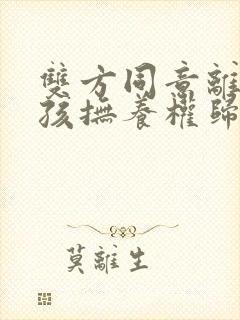 雙方同意離
孩撫養權歸
莫離生